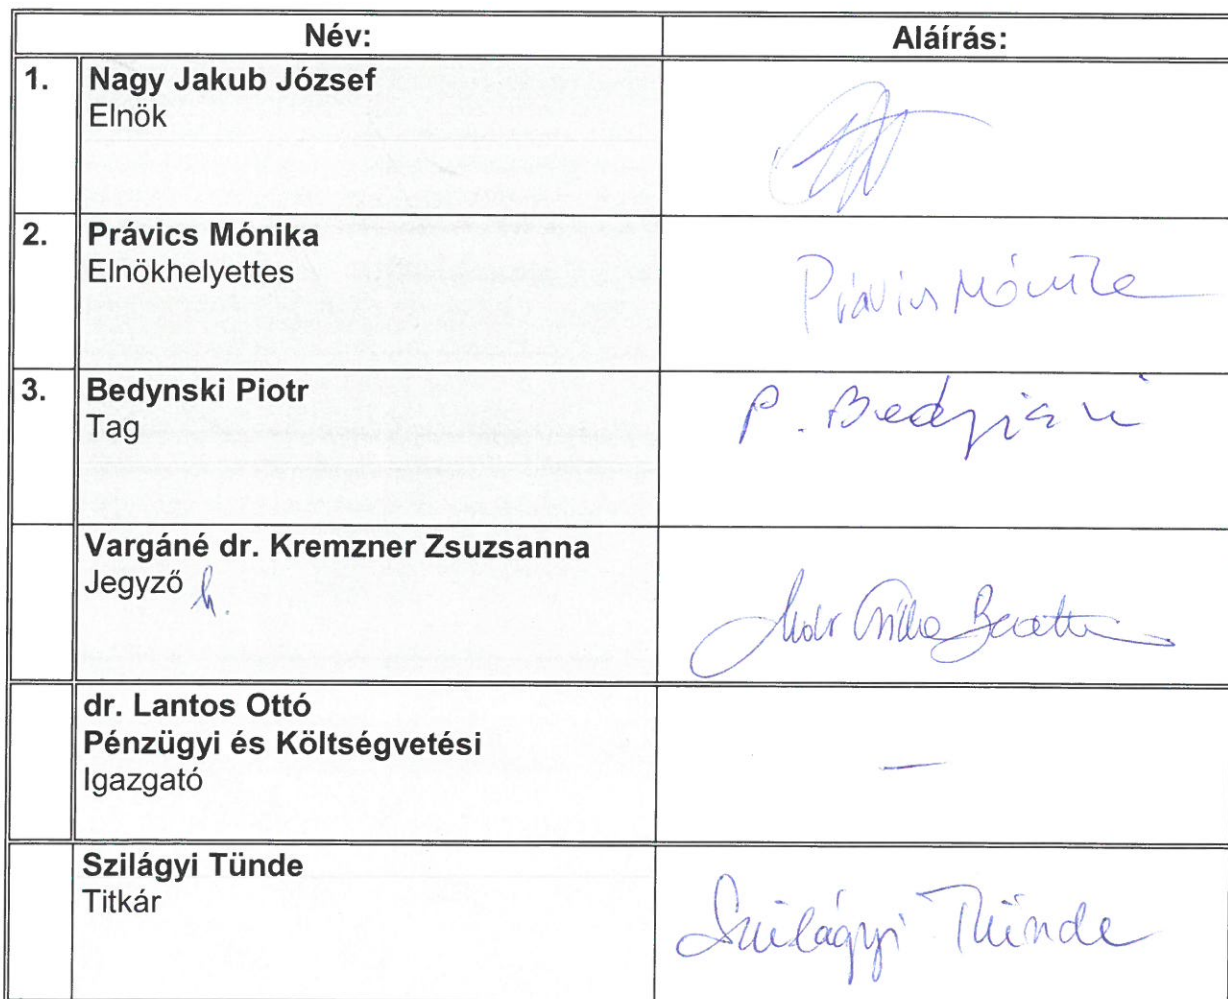 Név: Aláírás:
1. Nagy Jakub József
Elnök
2. Právics Mónika
Elnökhelyettes
Právics Mónika
3. Bedynski Piotr
Tag
P. Bedynski
Vargáné dr. Kremzner Zsuzsanna
Jegyző h.
dr. Lantos Ottó
Pénzügyi és Költségvetési
Igazgató
—
Szilágyi Tünde
Titkár
Szilágyi Tünde